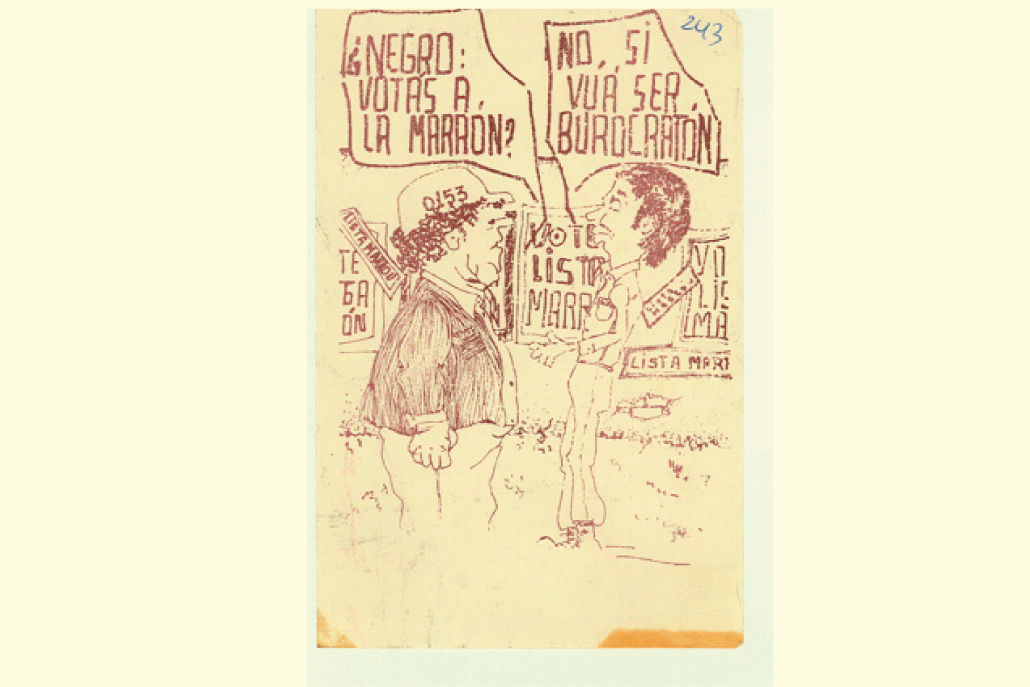 243
¿NEGRO:
VOTÁS A
LA MARRÓN?
NO,, SI
VUÁ SER
BUROCRATÓN
0153
LISTA MARRÓN
TE
ÓN
VOTE
LISTA
MARR
LIS
MA
LISTA MARR